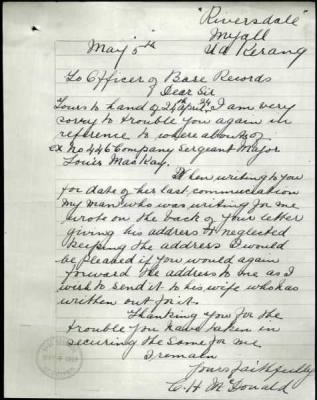 "Riversdale"
Myall
Via Kerang
May 5th
To Officer of Base Records
Dear Sir
Yours to hand of 24th April, I am very
sorry to trouble you again in
reference to whereabouts of
ex No 446 Company Sergeant Major
Louis MacKay.
When writing to you
for date of her last communication
my man who was writing for me
wrote on the back of your letter
giving his address & neglected
keeping the address I would
be pleased if you would again
forward the address to me as I
wish to send it to his wife who has
written out for it.
Thanking you for the
trouble you have taken in
securing the same for me
I remain
Yours faithfully
C. H. McDonald